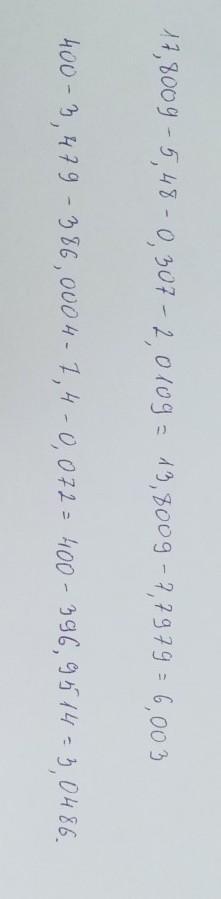 17,8009 - 5,48 - 0,307 - 2,0109 = 13,8009 - 7,7979 = 6,003
400 - 3,479 - 386,0004 - 7,4 - 0,072 = 400 - 396,9514 = 3,0486.